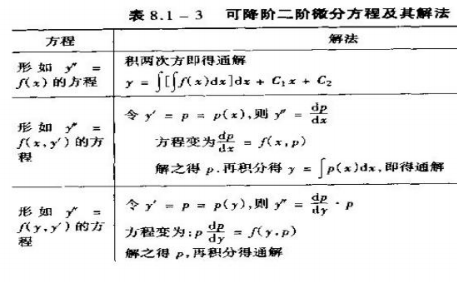 表 8.1 - 3 可降阶二阶微分方程及其解法
方程 解法
形如 y″ =
f(x) 的方程
积两次方即得通解
y = ∫[∫f(x)dx]dx + C₁x + C₂
形如 y″ =
f(x, y′) 的方
程
令 y′ = p = p(x), 则 y″ = dp/dx
方程变为 dp/dx = f(x, p)
解之得 p. 再积分得 y = ∫p(x)dx, 即得通解
形如 y″ =
f(y, y′) 的方
程
令 y′ = p = p(y), 则 y″ = dp/dy · p
方程变为: p dp/dy = f(y, p)
解之得 p, 再积分得通解